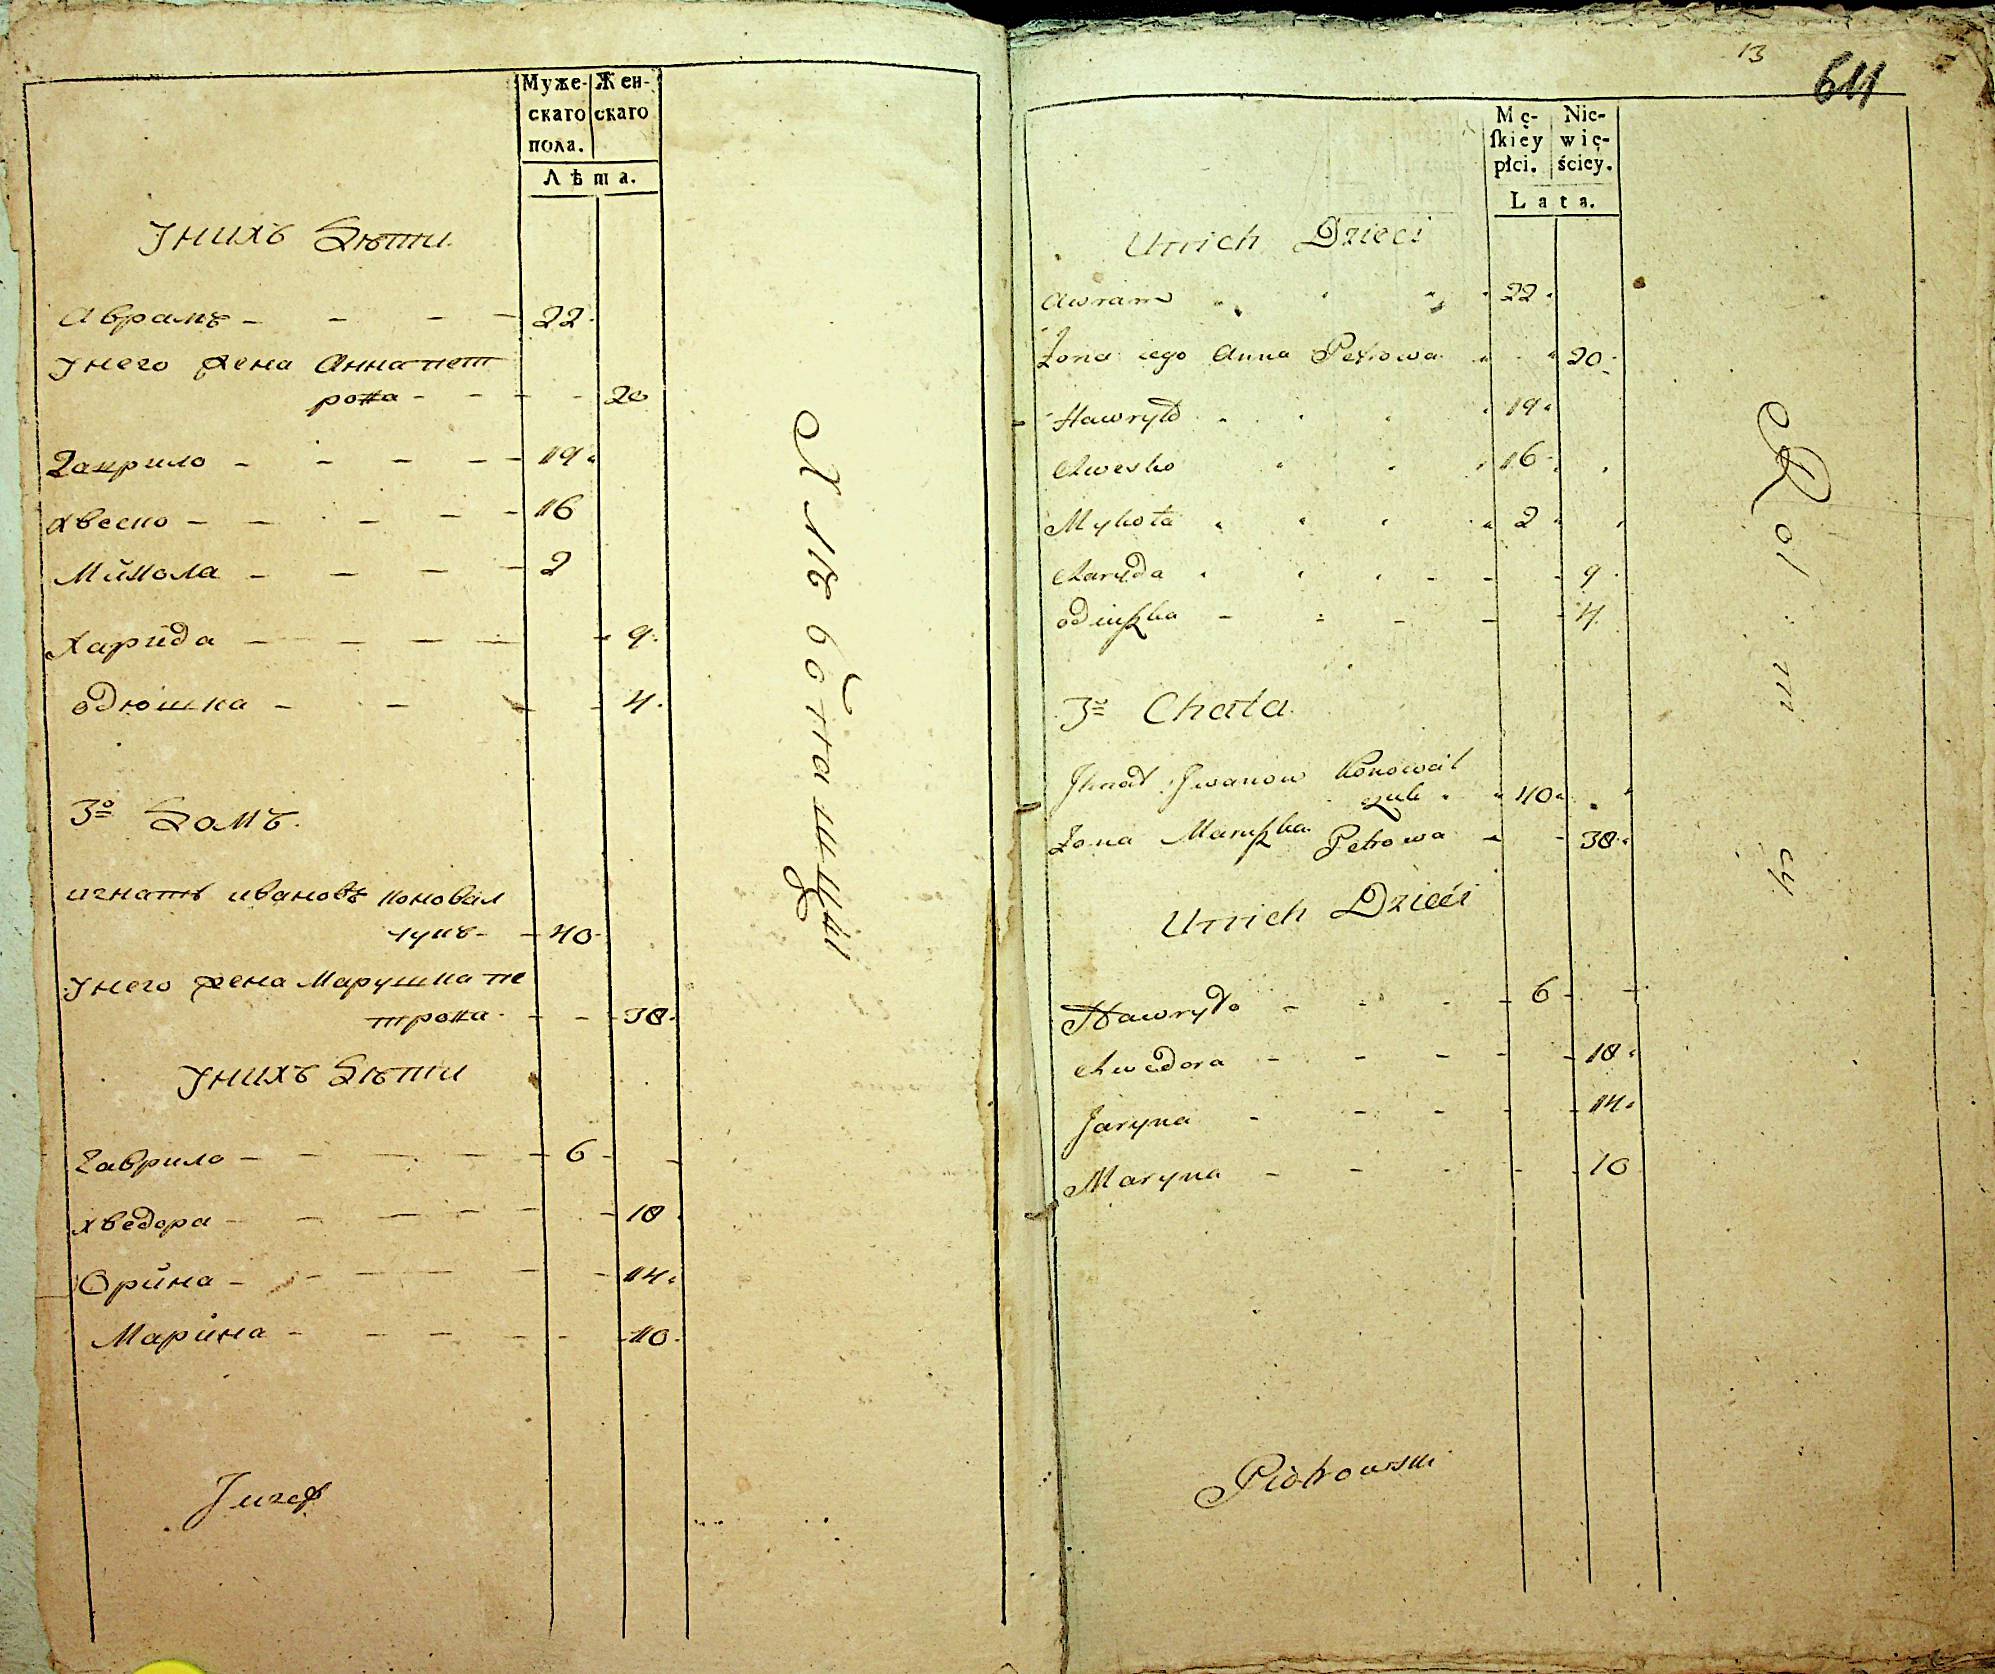 Муже- Жен-
скаго скаго
пола.
Лѣта.
Унихъ Дѣти
Аврамъ 22
Унего жена Анна пет
рова 20
Гаврило 19
Хвеско 16
Мйкола 2
Харйда 9
Одюшка 4
3º Домъ
игнатъ ивановъ коновал
чукъ 40
Унего жена Марушка пе
трова 38
Унихъ Дѣти
Гаврило 6
Хведора 18
Орйна 14
Марйна 10
Хлѣбопашцы
13
611
Mę- Nie-
ſkiey wię-
płci. ściey.
Lata.
Unich Dzieci
Awram 22
Żona iego Anna Petrowa 20
Hawryło 19
Chwesko 16
Mykoła 2
Charyda 9
Odiuſzka 4
3º Chata
Ihnat Iwanow Konowal
czuk 40
Żona Maruſzka Petrowa 38
Unich Dzieci
Hawryło 6
Chwedora 18
Jaryna 14
Maryna 10
Piotrowski
Rolnicy